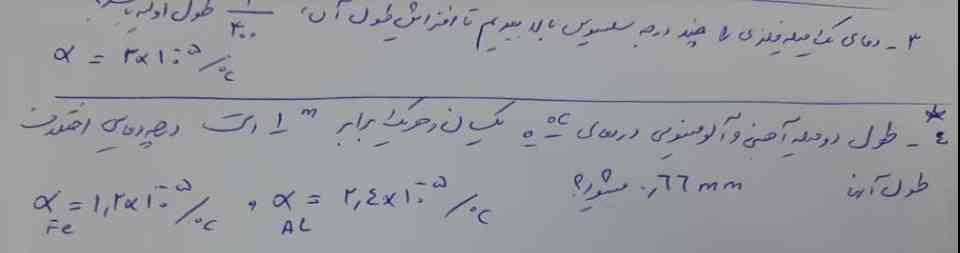 ۳ - دمای یک میله فلزی را چند درجه سلسیوس بالا ببریم تا افزایش طول آن، ۱/۴۰۰ طول اولیه باشد.
α = ۲×۱۰⁻⁵/°C
*۴ - طول دو میله آهنی و آلومینیومی در دمای ۰°C یکسان و هر یک برابر ۱m است در چه دمایی اختلاف
طول آنها ۰٫۶۶ mm میشود؟
α Fe = ۱٫۲×۱۰⁻⁵/°C و α AL = ۲٫٤×۱۰⁻⁵/°C